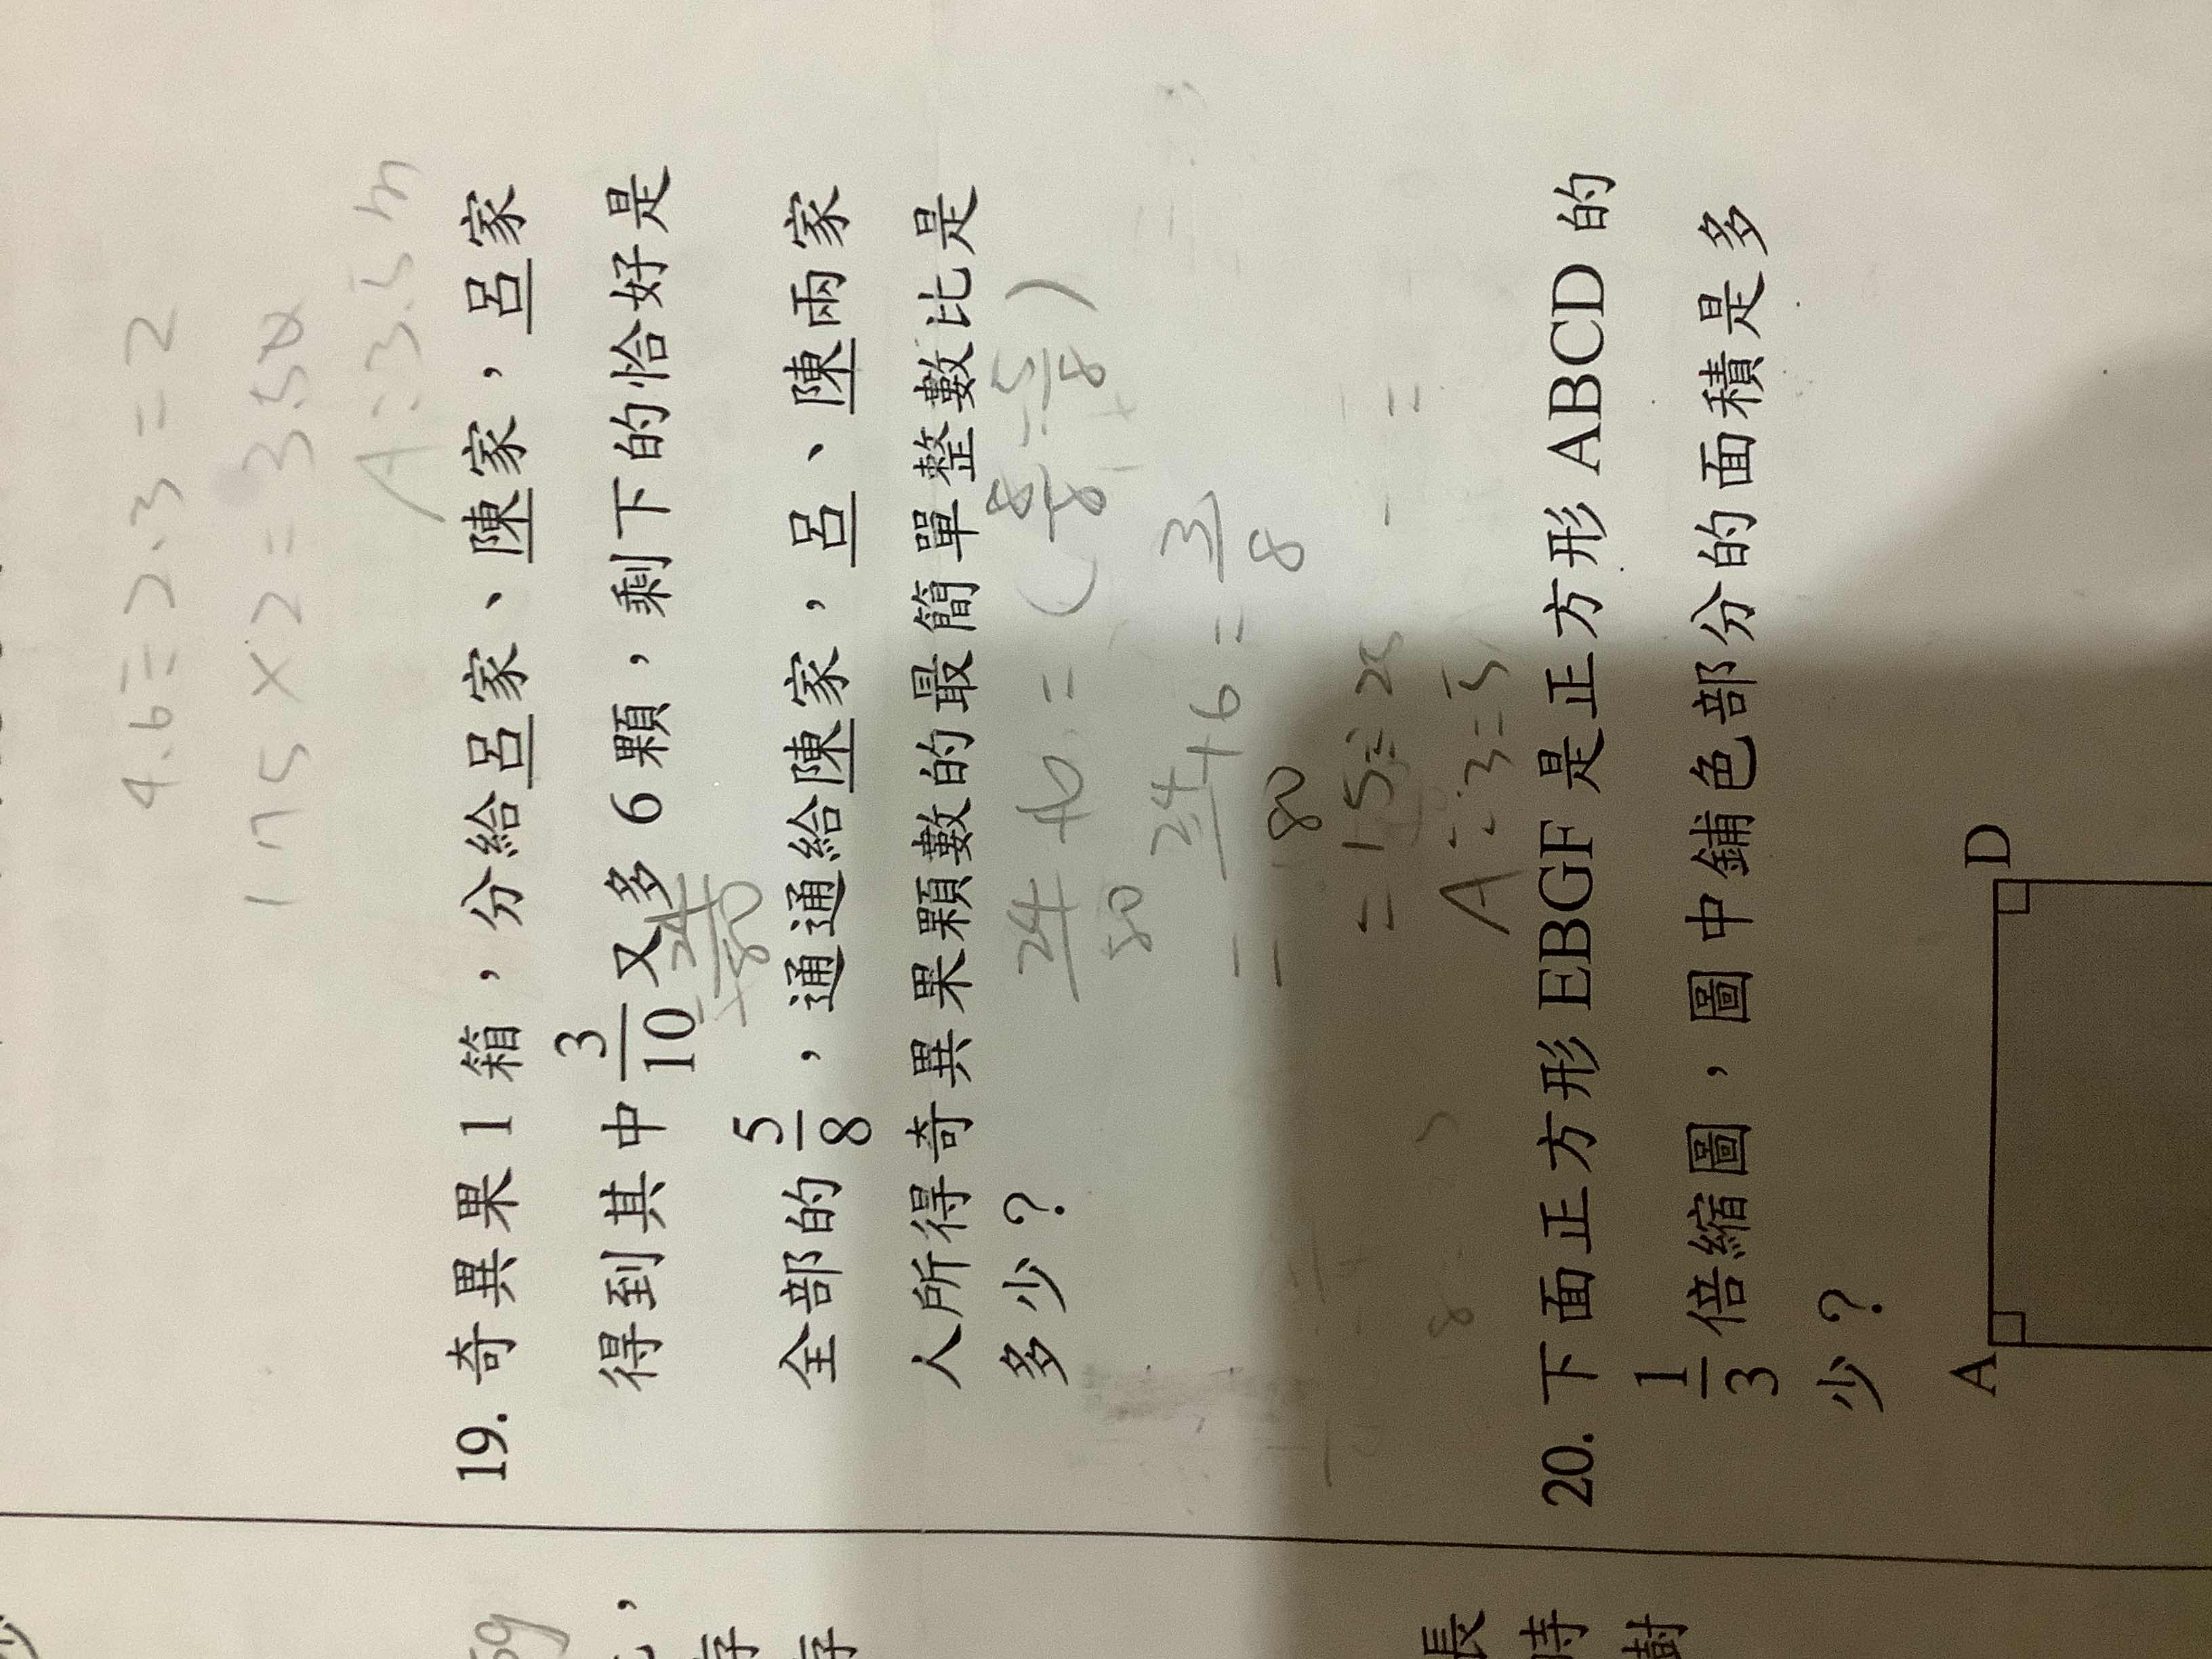 4.6=2.3=2
175×2=350
A:3.5m
19. 奇異果 1 箱，分給呂家、陳家，呂家
得到其中 3/10 又多 6 顆，剩下的恰好是
24/80
全部的 5/8，通通給陳家，呂、陳兩家
人所得奇異果顆數的最簡單整數比是
多少？
8/8 - 5/8 )
24+6
= 3/8
80
A:3:5
20. 下面正方形 EBGF 是正方形 ABCD 的
1/3 倍縮圖，圖中鋪色部分的面積是多
少？
A
D
長
時
樹